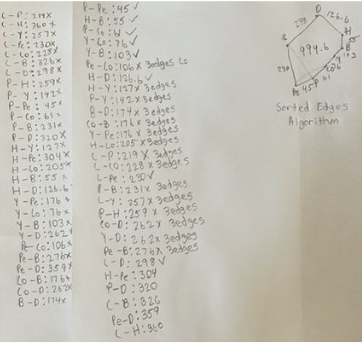 C-P: 219X
C-H: 360X
C-Y: 257X
C-Pe: 230X
C-Co: 228X
C-B: 326X
C-D: 298X
P-H: 259X
P-Y: 142X
P-Pe: 45X
P-Co: 61X
P-B: 231X
P-D: 320X
H-Y: 127X
H-Pe: 304X
H-Co: 205X
H-B: 55X
H-D: 126.6X
Y-Pe: 176X
Y-Co: 76X
Y-B: 103X
Y-D: 262X
Pe-Co: 106X
Pe-B: 276X
Pe-D: 359X
Co-B: 176X
Co-D: 262X
B-D: 174X
P-Pe: 45✓
H-B: 55✓
P-Co: 61✓
Y-Co: 76✓
Y-B: 103✓
Pe-Co: 106X 3edges Co
H-D: 126.6✓
H-Y: 127X 3edges
P-Y: 142X 3edges
B-D: 174X 3edges
Co-B: 176X 3edges
Y-Pe: 176X 3edges
H-Co: 205X 3edges
C-P: 219X 3edges
C-Co: 228X 3edges
C-Pe: 230✓
P-B: 231X 3edges
C-Y: 257X 3edges
P-H: 259X 3edges
Co-D: 262X 3edges
Y-D: 262X 3edges
Pe-B: 276X 3edges
C-D: 298✓
H-Pe: 304
P-D: 320
C-B: 326
Pe-D: 359
C-H: 360
D
298
126.6
H
C
994.6
55
B
230
Y
Co
61
Pe 45 P
Sorted Edges
Algorithm